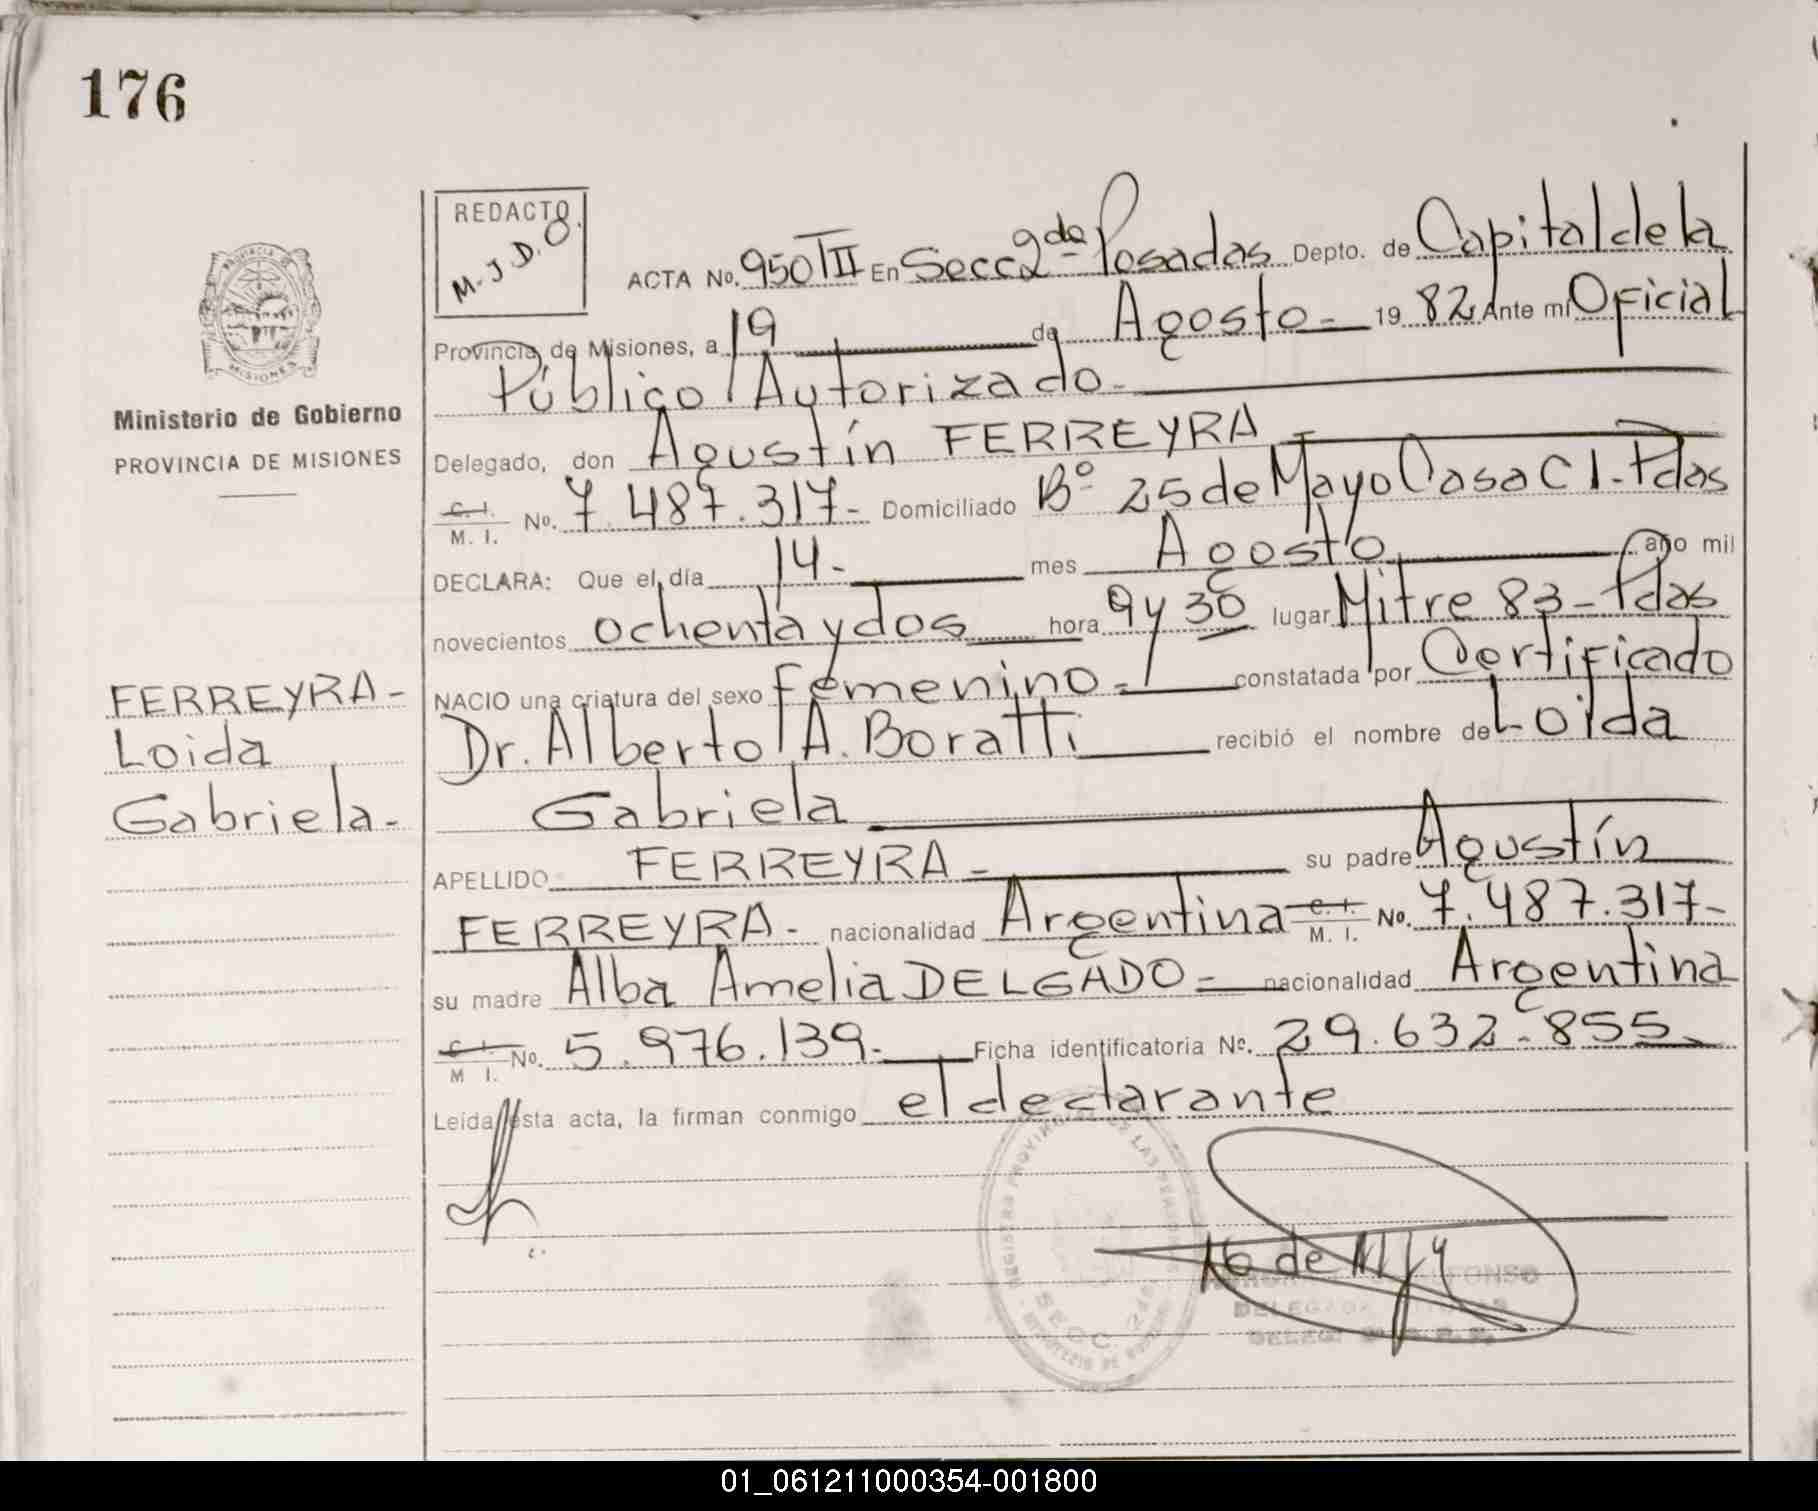 176
REDACTO
M.J.D.O.
PROVINCIA DE
MISIONES
Ministerio de Gobierno
PROVINCIA DE MISIONES
FERREYRA-
Loida
Gabriela-
ACTA No. 950 TII En Secc 2da Posadas Depto. de Capital de la
Provincia de Misiones, a 19 de Agosto- 1982 Ante mí Oficial
Público Autorizado-
Delegado, don Agustín FERREYRA
C. I. M. I. No. 7.487.317- Domiciliado Bº 25 de Mayo Casa C1-Pdas
DECLARA: Que el día 14- mes Agosto año mil
novecientos ochenta y dos hora 9 y 30 lugar Mitre 83-Pdas
NACIO una criatura del sexo femenino- constatada por Certificado
Dr. Alberto A. Boratti recibió el nombre de Loida
Gabriela
APELLIDO FERREYRA- su padre Agustín
FERREYRA- nacionalidad Argentina C. I. M. I. No. 7.487.317-
su madre Alba Amelia DELGADO- nacionalidad Argentina
C. I. M I. No. 5.976.139- Ficha identificatoria Nº. 29.632.855
Leída esta acta, la firman conmigo el declarante
SECC. 2da
01_061211000354-001800